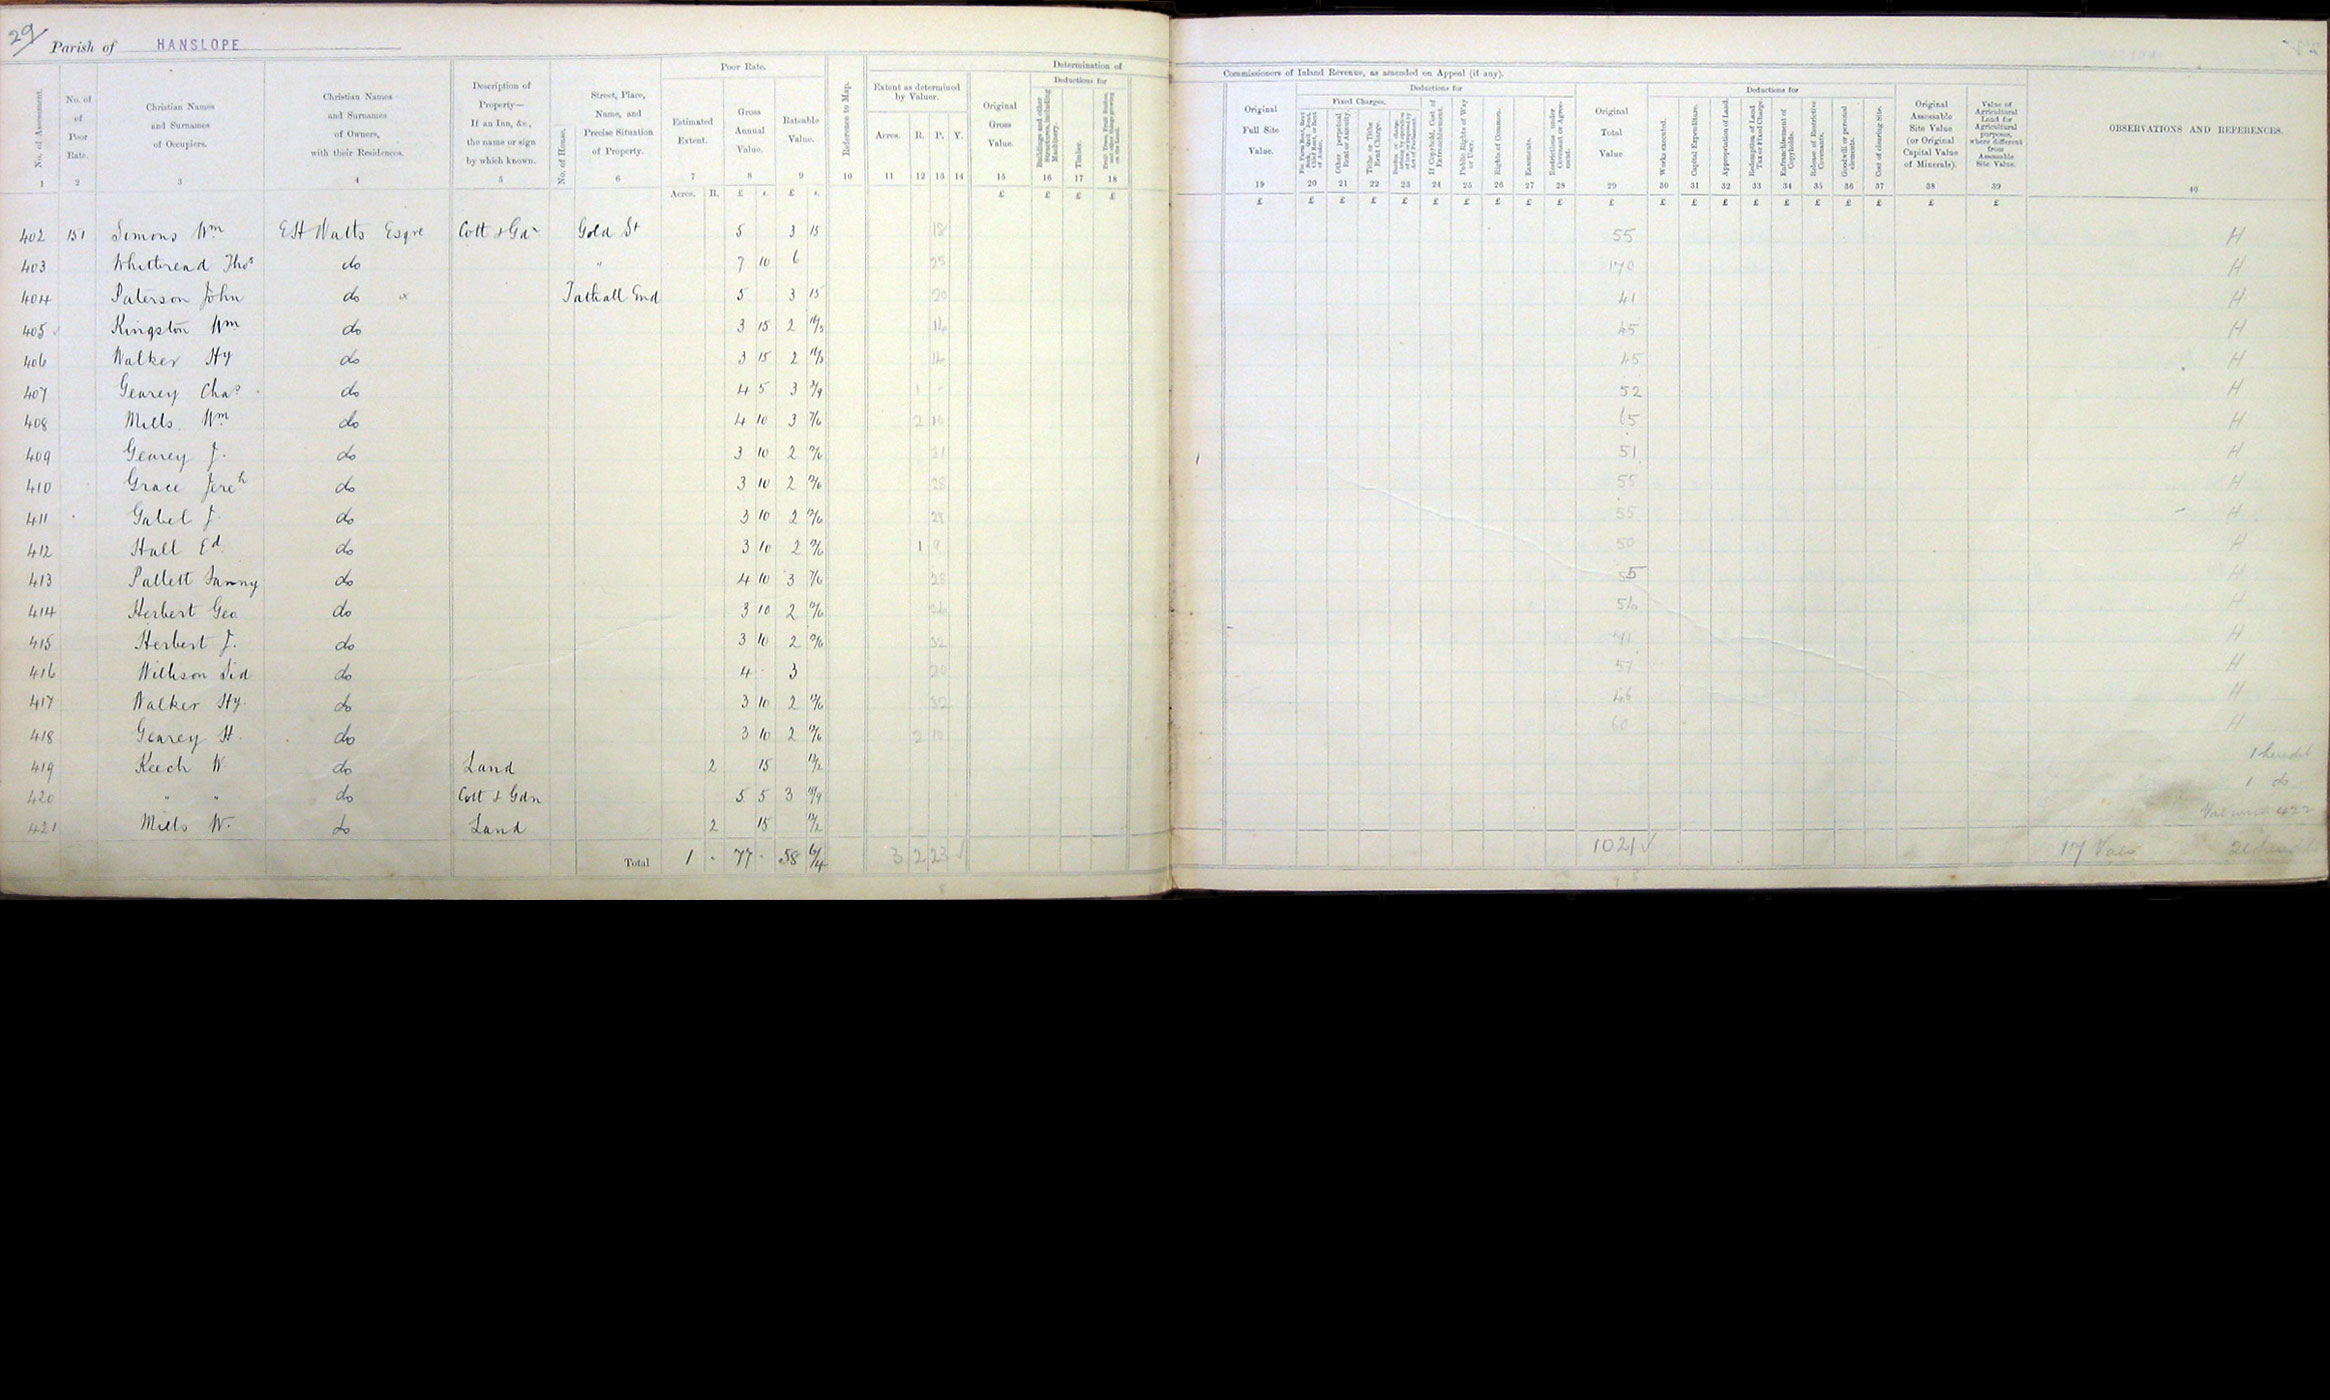 29
Parish of HANSLOPE
Poor Rate.
Determination of
Commissioners of Inland Revenue, as amended on Appeal (if any).
No. of Assessment. No. of Poor Rate. Christian Names and Surnames of Occupiers. Christian Names and Surnames of Owners, with their Residences. Description of Property— If an Inn, &c., the name or sign by which known. No. of House. Street, Place, Name, and Precise Situation of Property. Estimated Extent. Gross Annual Value. Rateable Value. Reference to Map. Extent as determined by Valuer. Acres. R. P. Y. Original Gross Value. Deductions for Buildings and other Structures, including Machinery. Timber. Fruit Trees, Fruit Bushes, and other things growing on the Land.
Original Full Site Value. Deductions for Fixed Charges. Other perpetual Rent or Annuity. Tithe or Tithe Rent Charge. If Copyhold, Cost of Enfranchisement. Public Rights of Way or User. Rights of Common. Easements. Restrictions under Covenant or Agreement. Original Total Value Deductions for Works executed. Capital Expenditure. Appropriation of Land. Redemption of Land Tax or Fixed Charge. Enfranchisement of Copyholds. Release of Restrictive Covenants. Goodwill or personal elements. Cost of clearing Site. Original Assessable Site Value (or Original Capital Value of Minerals). Value of Agricultural Land for Agricultural purposes, where different from Assessable Site Value. OBSERVATIONS AND REFERENCES.
1 2 3 4 5 6 7 8 9 10 11 12 13 14 15 16 17 18 19 20 21 22 23 24 25 26 27 28 29 30 31 32 33 34 35 36 37 38 39 40
Acres. R. £ s. £ s. £ £ £ £ £ £ £ £ £ £ £ £ £ £ £ £ £ £ £ £ £ £ £ £ £
402 151 Simons Wm E H Watts Esqre Cott & Gdn Gold St 5 3 15 18 55 H
403 Whitbread Thos do " 7 10 6 25 170 H
404 Paterson John do x Tathall End 5 3 15 20 41 H
405 Kingston Wm do 3 15 2 16/3 16 45 H
406 Walker Hy do 3 15 2 16/3 16 45 H
407 Gearey Chas do 4 5 3 3/9 1 - 52 H
408 Mills Wm do 4 10 3 7/6 2 10 65 H
409 Gearey J. do 3 10 2 12/6 31 51 H
410 Grace Jereh do 3 10 2 12/6 28 55 H
411 Gabel J. do 3 10 2 12/6 28 55 H
412 Hall Ed do 3 10 2 12/6 1 9 50 H
413 Pallett Fanny do 4 10 3 7/6 28 55 H
414 Herbert Geo do 3 10 2 12/6 26 56 H
415 Herbert J. do 3 10 2 12/6 32 H
416 Willison Sid do 4 - 3 20 57 H
417 Walker Hy. do 3 10 2 12/6 32 46 H
418 Gearey H. do 3 10 2 12/6 2 10 60 H
419 Keech W do Land 2 15 1 heredit
420 " " do Cott & Gdn 5 5 3 18/9 1 do
421 Mills W. do Land 2 15 Val with 422
Total 1 - 77 - 58 6/4 3 2 23 1021 ✓ 17 Vals